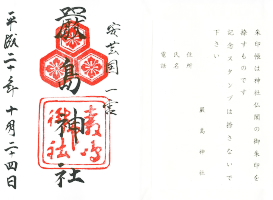 朱印帳は神社仏閣の御朱印を
捺すものです
記念スタンプは捺さないで
下さい
厳島神社
住所
氏名
電話
安芸国一宮
嚴島神社
平成二十年十月二十四日